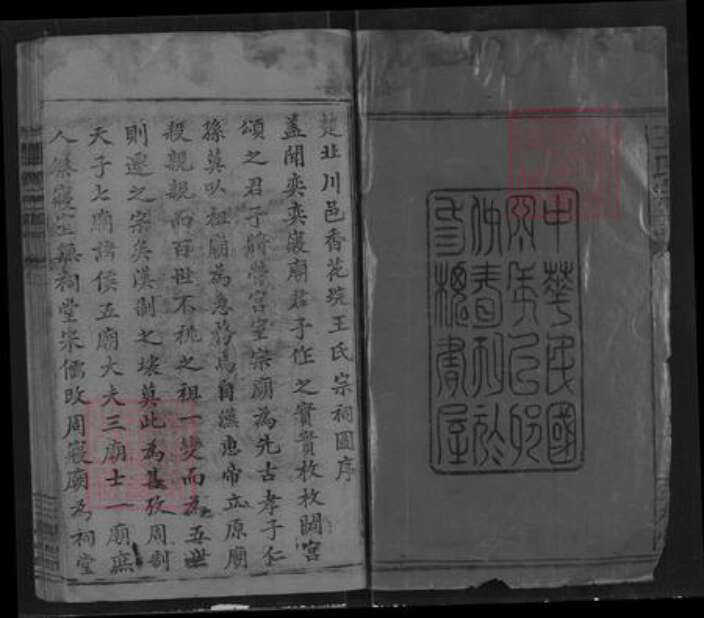 中華民國
四年乙卯
仲春刊於
三槐書屋
楚北川邑香花垸王氏宗祠圖序
蓋聞奕奕寢廟君子作之實實枚枚閟宮
頌之君子將營宮室宗廟為先古孝子仁
孫莫以祖廟為急務焉自漢惠帝立原廟
殺親親而百世不祧之祖一變而為五世
則遷之宗矣漢制之壞莫此為甚攷周制
天子七廟諸侯五廟大夫三廟士一廟庶
人祭寢室無祠堂宋儒改周寢廟為祠堂